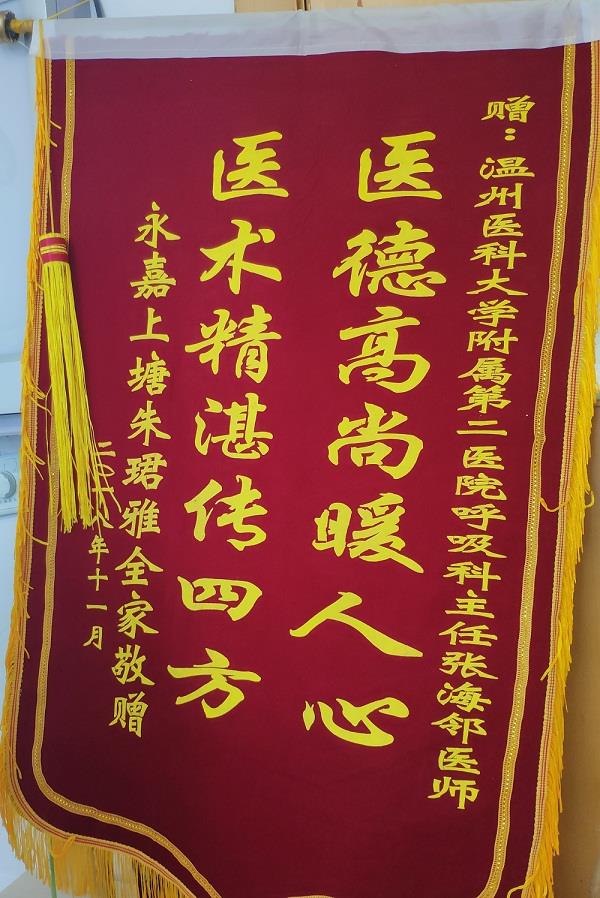 赠：温州医科大学附属第二医院呼吸科主任张海邻医师
医德高尚暖人心
医术精湛传四方
永嘉上塘朱珺雅全家敬赠
二〇一八年十一月